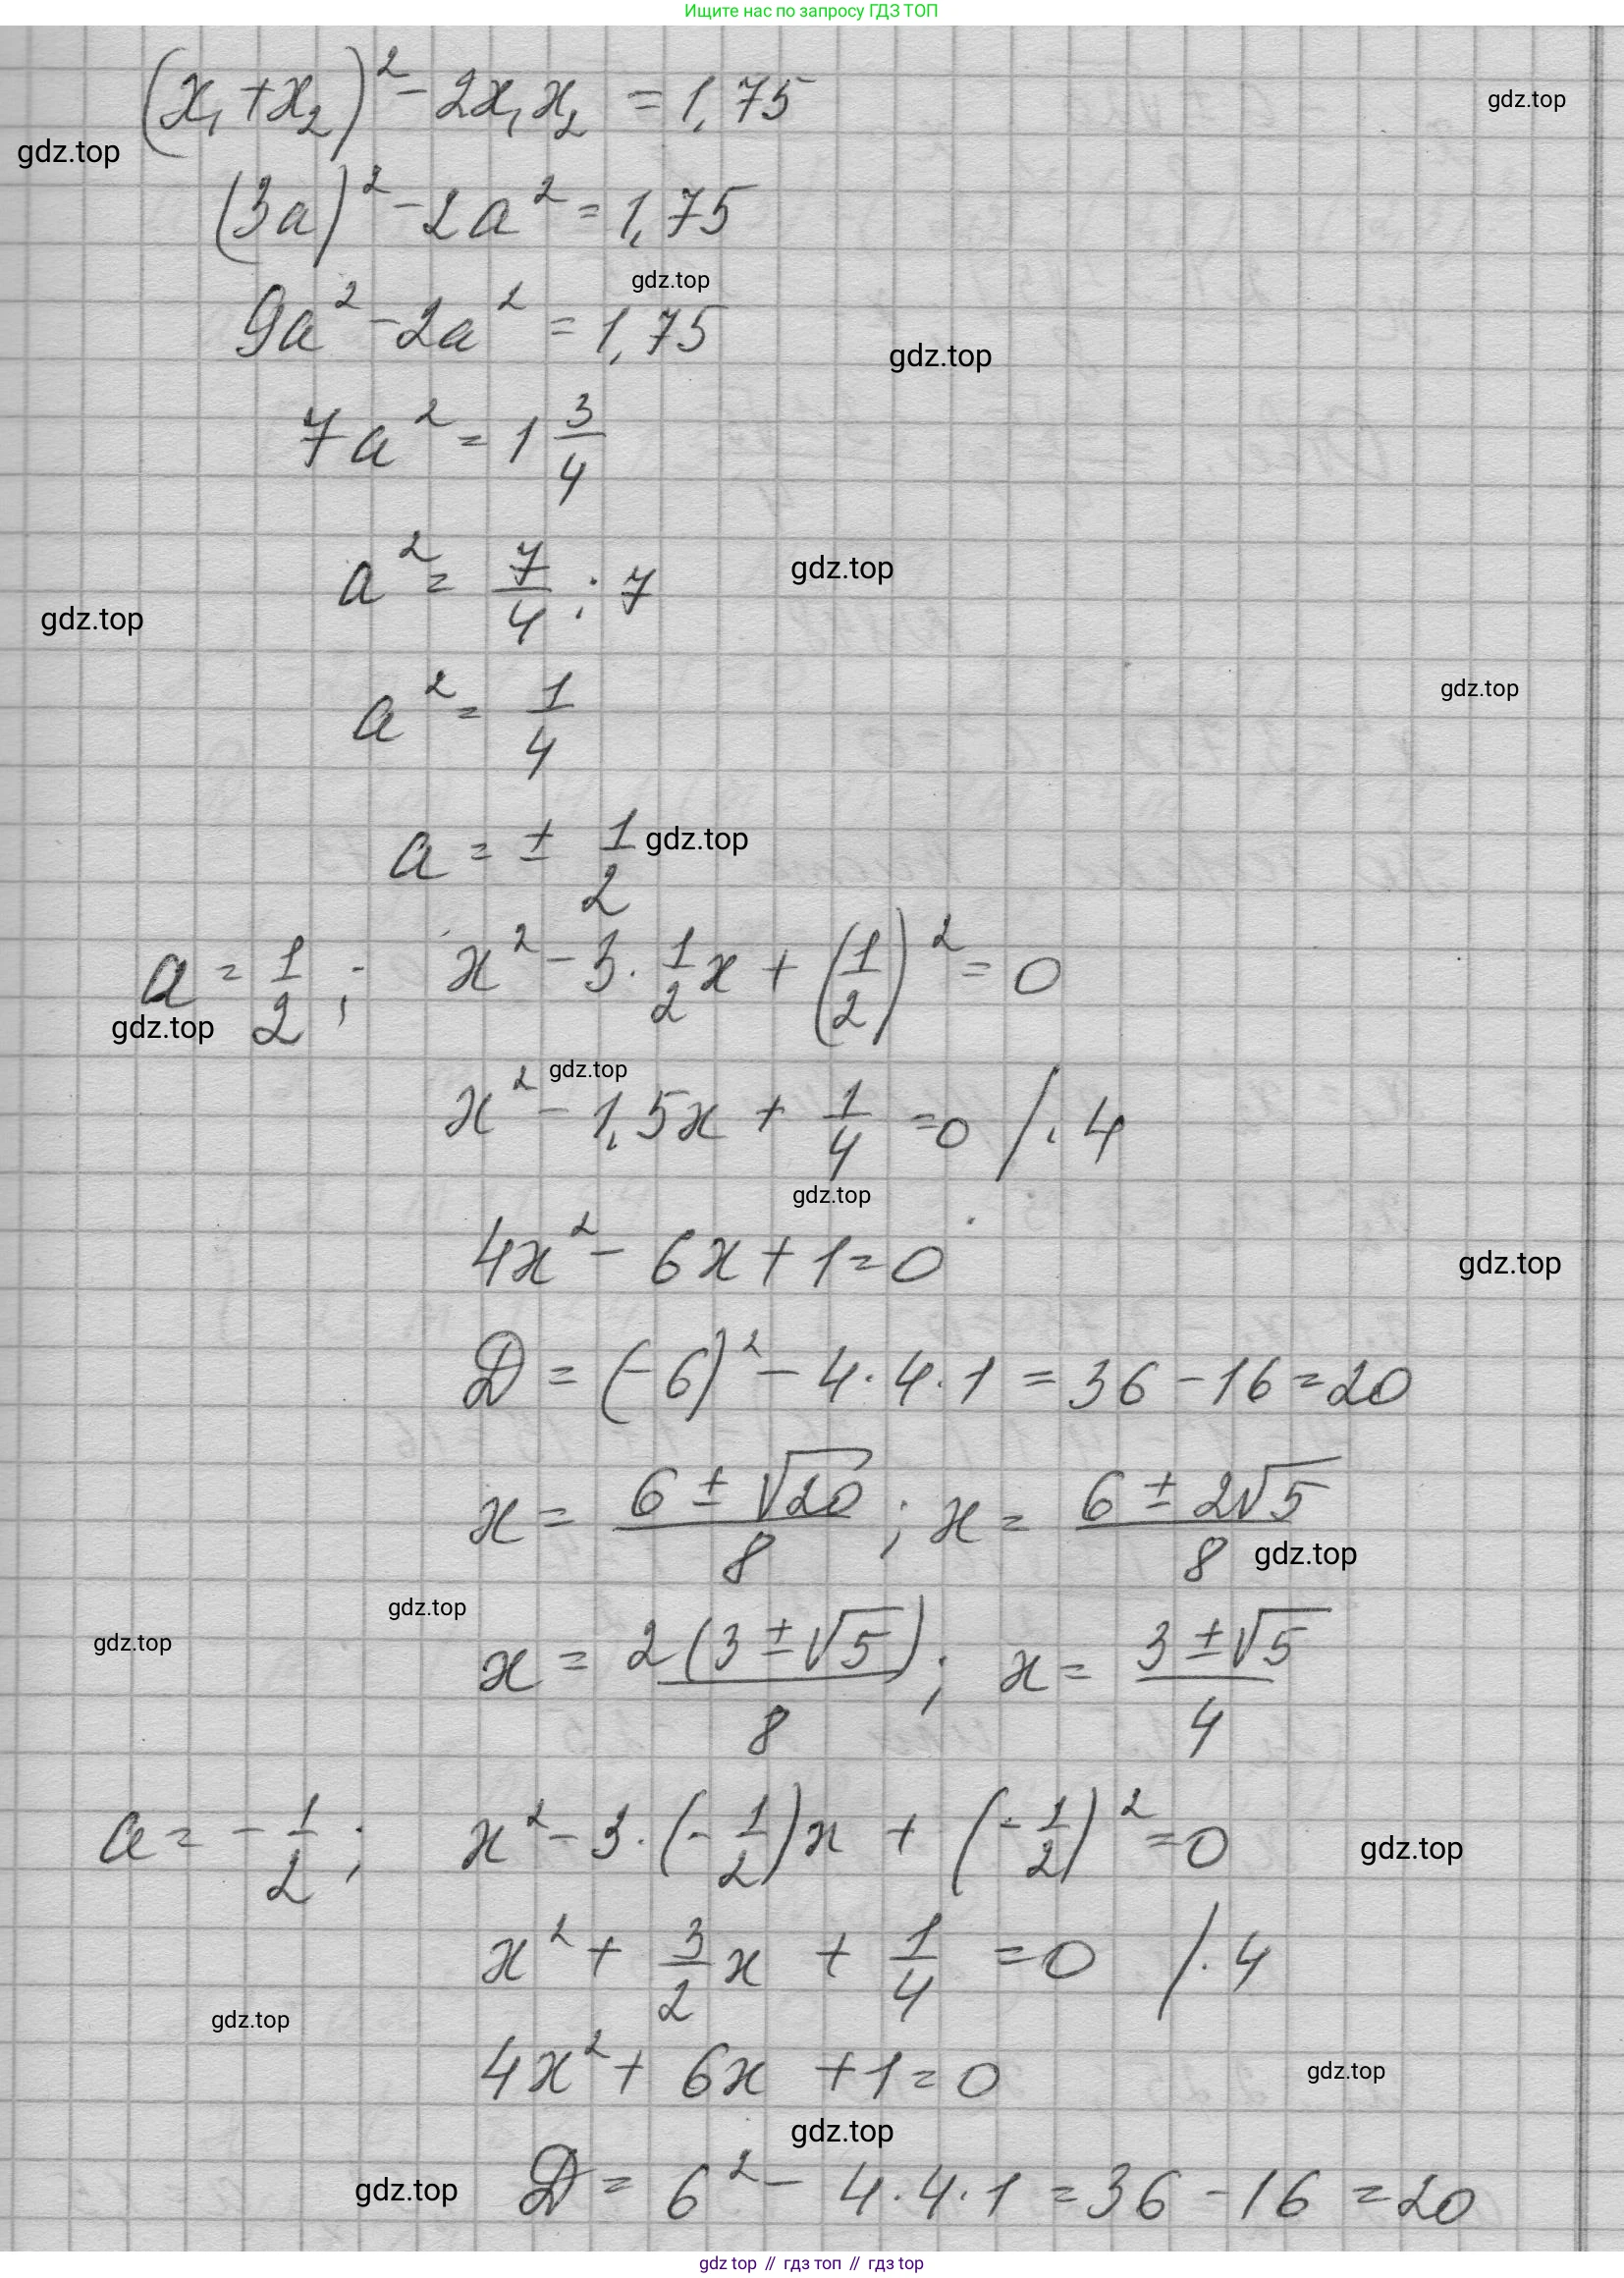 Ищите нас по запросу ГДЗ ТОП
(x₁ + x₂)² - 2x₁x₂ = 1,75
gdz.top
gdz.top
(3a)² - 2a² = 1,75
gdz.top
9a² - 2a² = 1,75
gdz.top
7a² = 1 3/4
a² = 7/4 : 7
gdz.top
gdz.top
a² = 1/4
gdz.top
a = ± 1/2
gdz.top
a = 1/2; x² - 3 · 1/2 x + (1/2)² = 0
gdz.top
gdz.top
x² - 1,5x + 1/4 = 0 / · 4
gdz.top
4x² - 6x + 1 = 0
gdz.top
D = (-6)² - 4 · 4 · 1 = 36 - 16 = 20
x = (6 ± √20)/8 ; x = (6 ± 2√5)/8
gdz.top
gdz.top
gdz.top
x = 2(3 ± √5)/8 ; x = (3 ± √5)/4
a = - 1/2; x² - 3 · (- 1/2)x + (- 1/2)² = 0
gdz.top
x² + 3/2 x + 1/4 = 0 / · 4
gdz.top
4x² + 6x + 1 = 0
gdz.top
gdz.top
gdz.top
D = 6² - 4 · 4 · 1 = 36 - 16 = 20
gdz top // гдз топ // гдз top